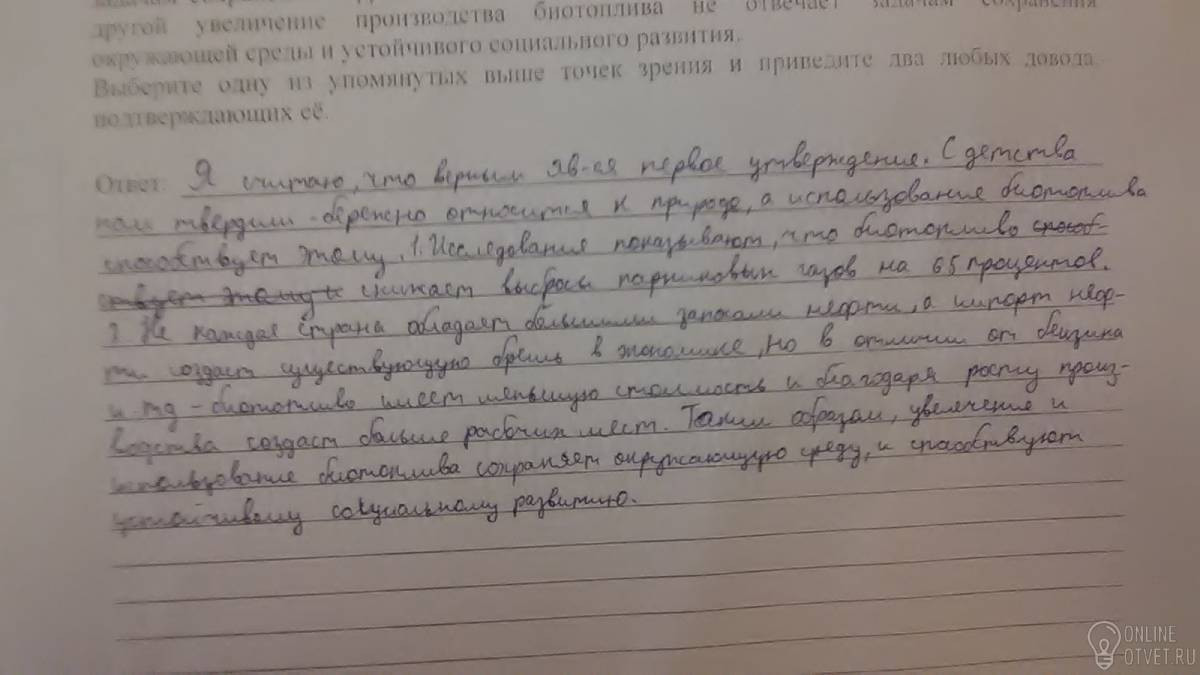 другой увеличение производства биотоплива не отвечает задачам сохранения
окружающей среды и устойчивого социального развития.
Выберите одну из упомянутых выше точек зрения и приведите два любых довода,
подтверждающих её.
Ответ: Я считаю, что верным яв-ся первое утверждение. С детства
нам твердили - бережно относится к природе, а использование биотоплива
способствует этому. 1. Исследования показывают, что биотопливо способ-
ствует этому и снижает выбросы парниковых газов на 65 процентов.
2 Не каждая страна обладает большими запасами нефти, а импорт неф-
ти создаст существующую брешь в экономике, но в отличии от бензина
и тд - биотопливо имеет меньшую стоимость и благодаря росту произ-
водства создаст больше рабочих мест. Таким образом, увелечение и
использование биотоплива сохраняет окружающую среду, и способствуют
устойчивому социальному развитию.
ONLINE
OTVET.RU